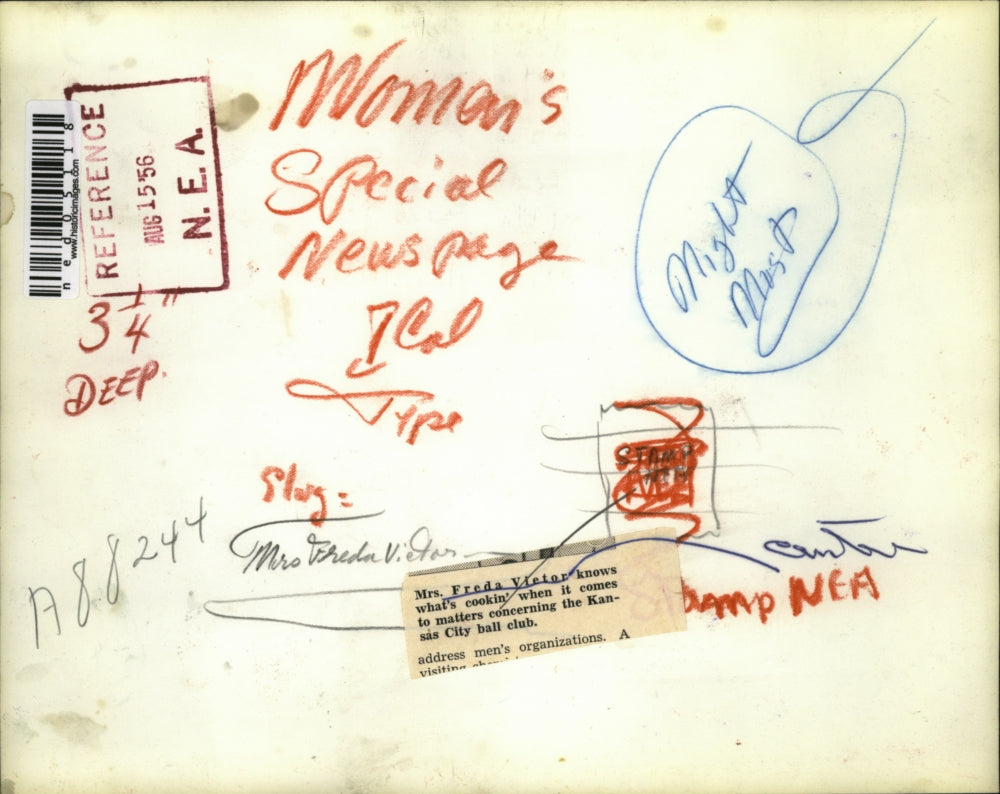 Women's
Special
Newspage
1 Col
Type
REFERENCE
AUG 15 '56
N. E. A.
ned05118
www.historicimages.com
3 1/4"
DEEP.
Might
Mast
STAMP
NEA
Slug =
Mrs Freda Victor
A88244
STAMP NEA
Mrs. Freda Victor knows
what's cookin' when it comes
to matters concerning the Kan-
sas City ball club.
address men's organizations. A
visiting